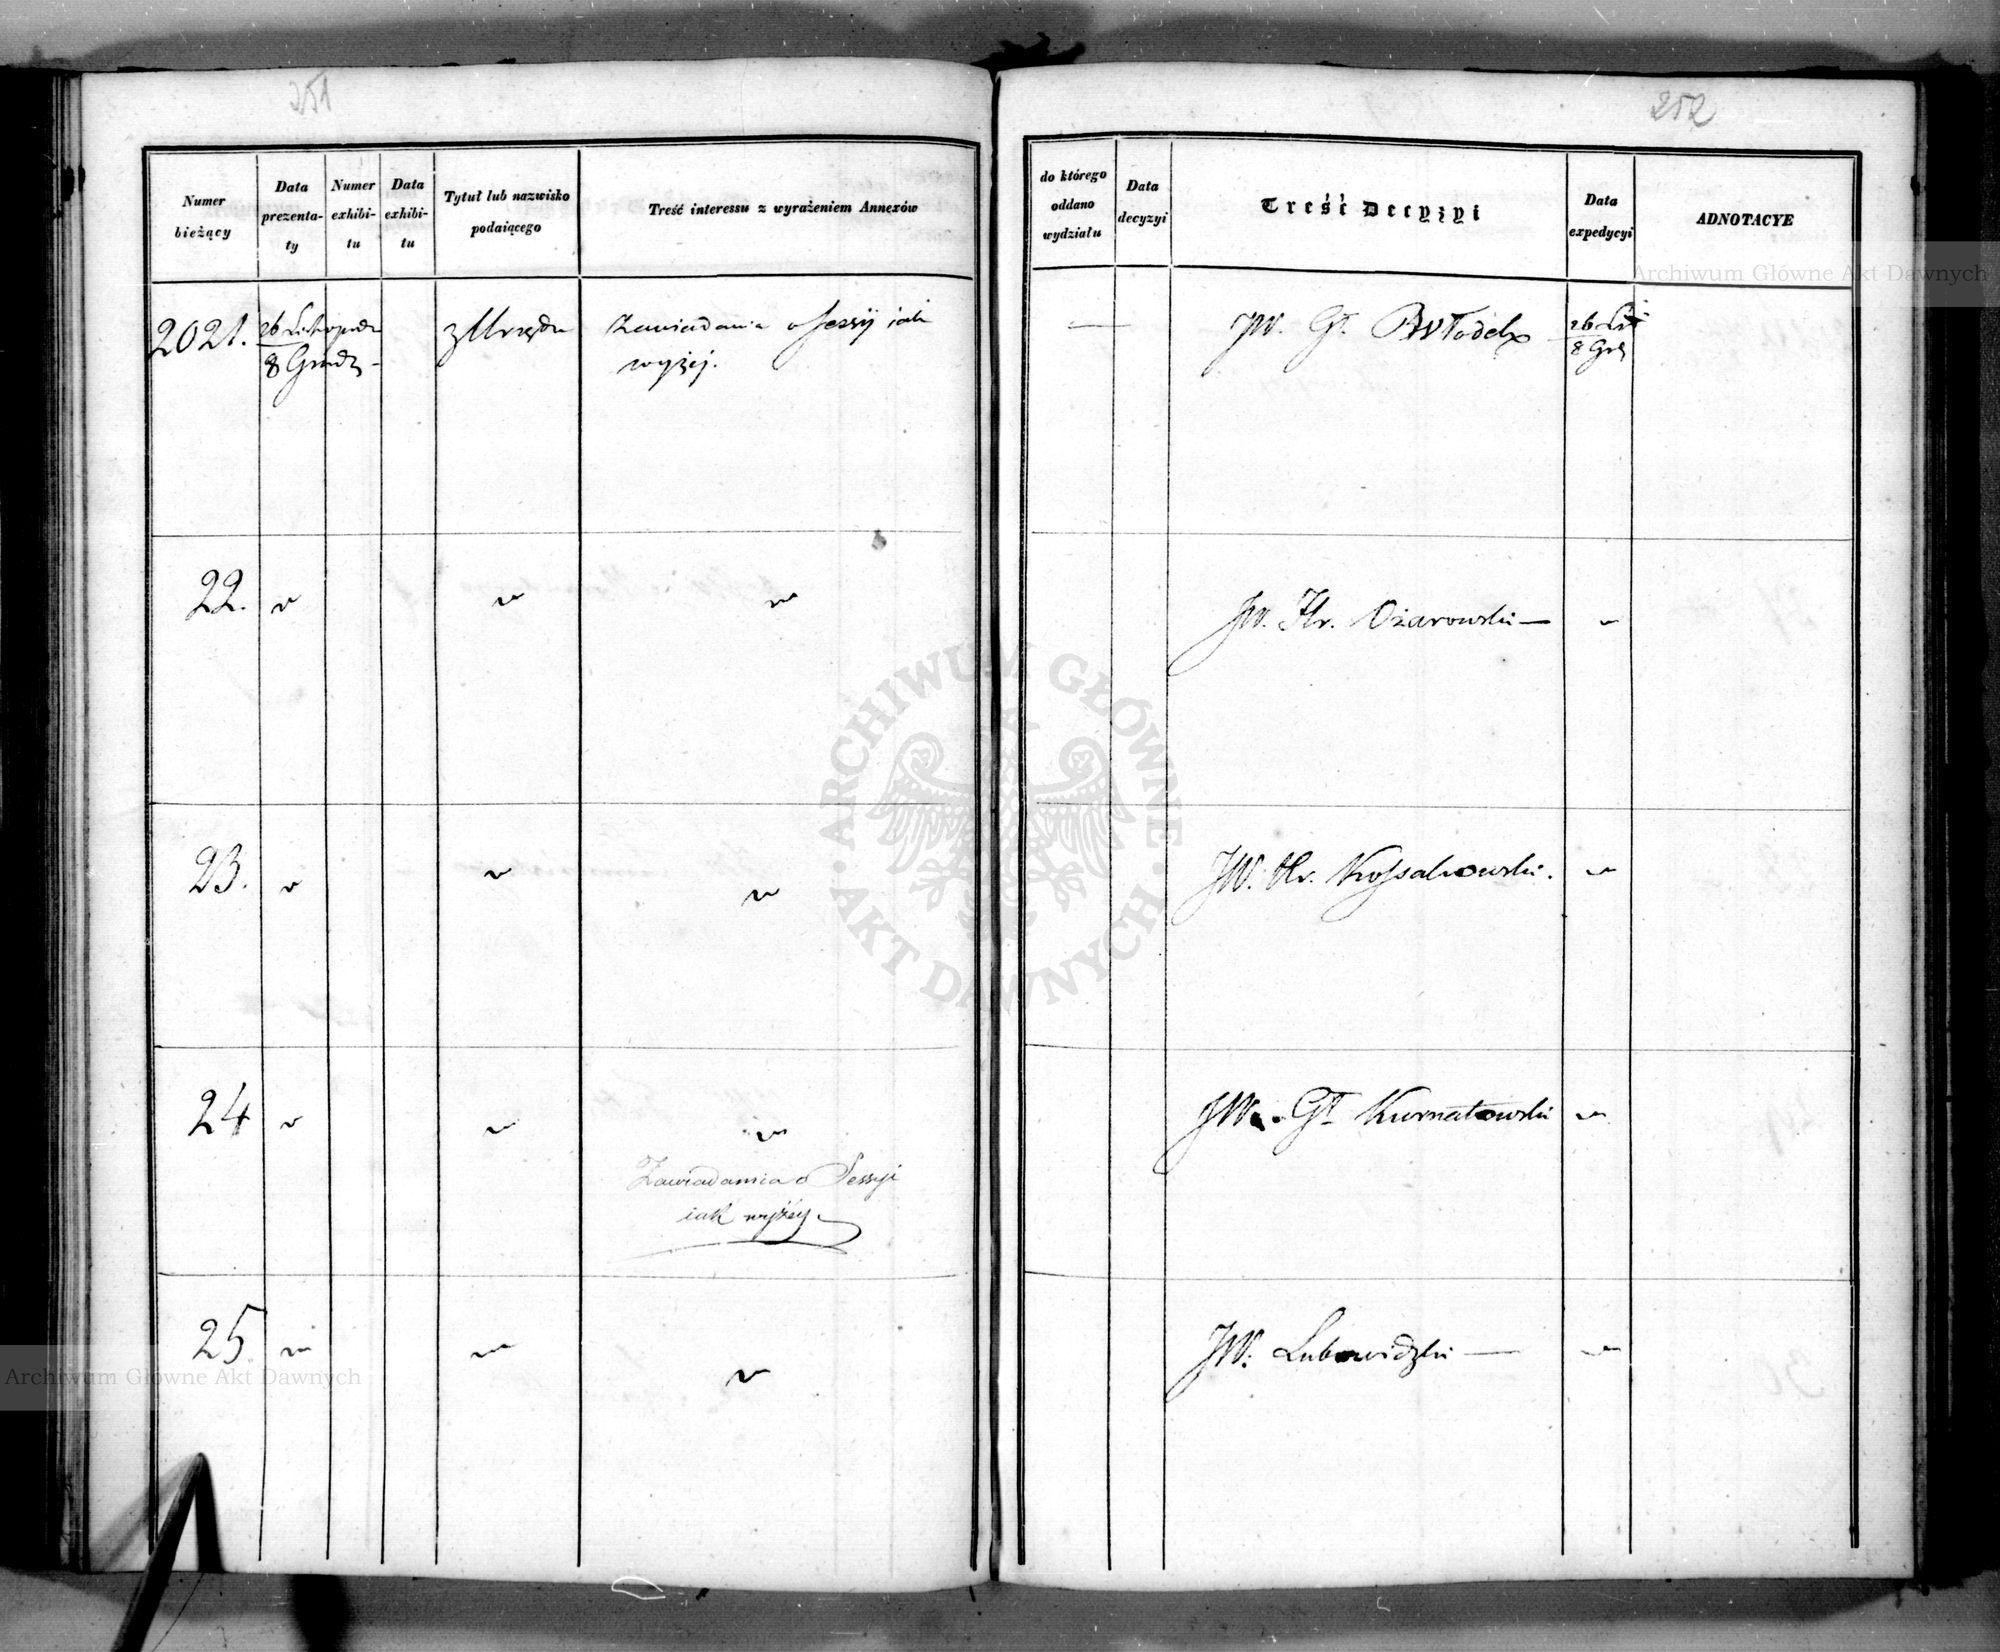 251
252
Numer bieżący
Data prezenta-ty
Numer exhibi-tu
Data exhibi-tu
Tytuł lub nazwisko podaiącego
Treść interessu z wyrażeniem Annexów
do którego oddano wydziału
Data decyzyi
Treść Decyzyi
Data expedycyi
ADNOTACYE
2021. 26 Listopada z Urzędu Zawiadamia o Sessyi iak — JW. Gł. 26 Lis
8 Grudz- wyżej. 8 Grd
22. JW. Hr. Ożarowski —
23. JW. Hr. Kossakowski.
24 JW. Gł. Kurnatowski
Zawiadamia o Sessyi
iak wyżey
25 JW. Lubowidzki —
Archiwum Główne Akt Dawnych
ARCHIWUM GŁÓWNE · AKT DAWNYCH ·
Archiwum Główne Akt Dawnych